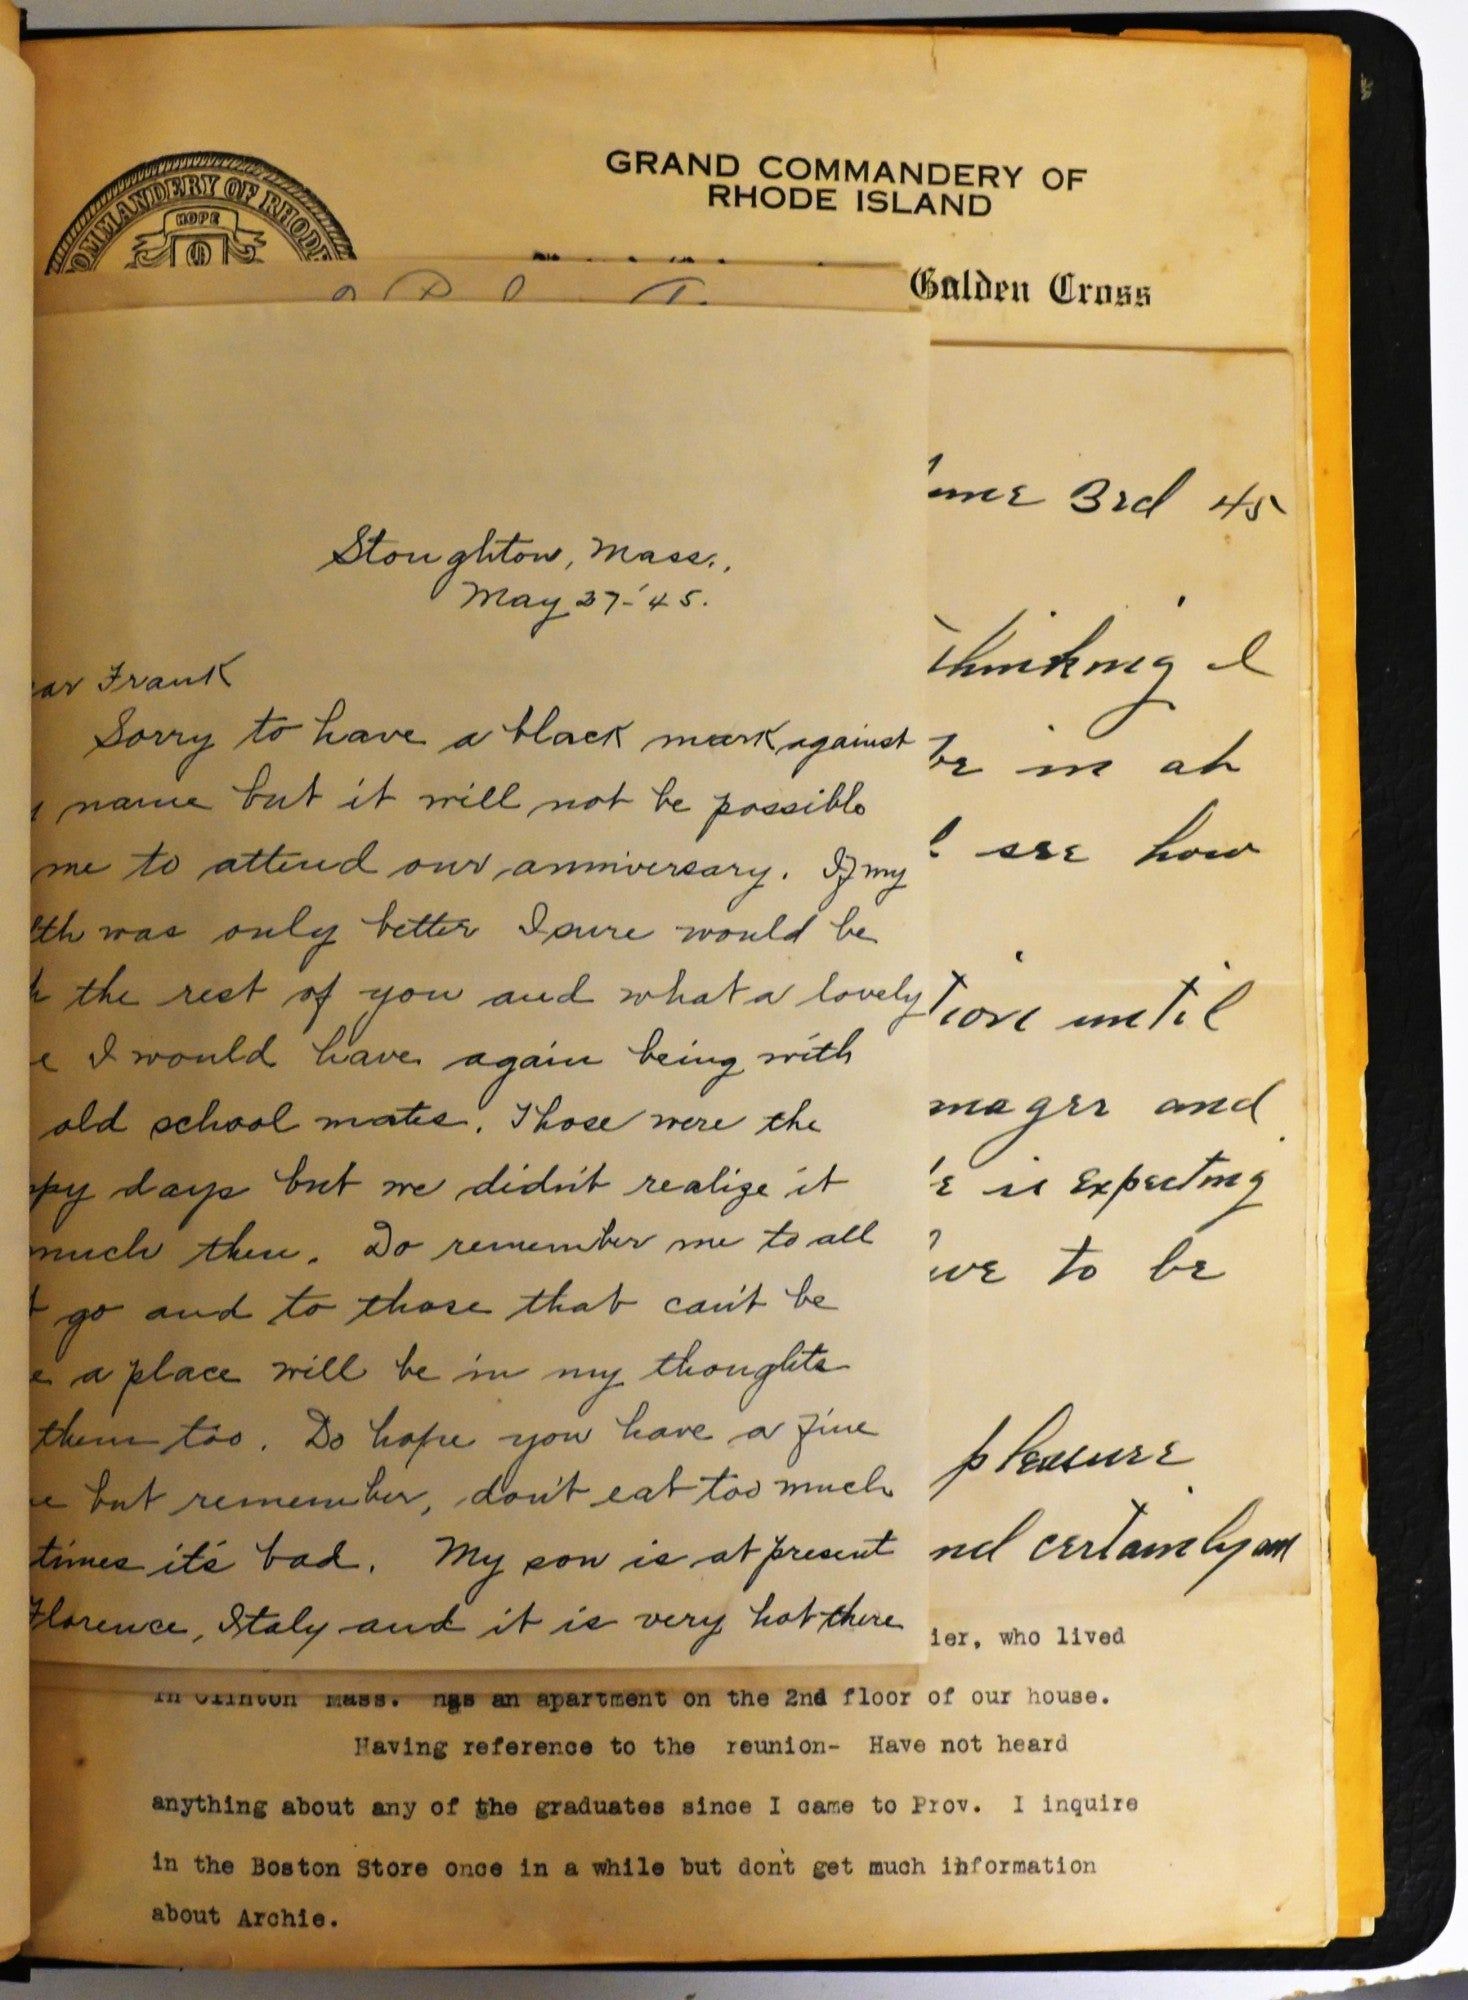 GRAND COMMANDERY OF
RHODE ISLAND
COMMANDERY OF RHODE
HOPE
Golden Cross
Stoughton, Mass.,
May 27-'45.
ar Frank
Sorry to have a black mark against
name but it will not be possible
me to attend our anniversary. If my
lth was only better I sure would be
h the rest of you and what a lovely
e I would have again being with
old school mates. Those were the
ppy days but we didn't realize it
much then. Do remember me to all
t go and to those that can't be
e a place will be in my thoughts
them too. Do hope you have a fine
e but remember, don't eat too much
times it's bad. My son is at present
Florence, Italy and it is very hot there
une 3rd 45
thinking I
be in at
see how
tion until
mager and
e is Expecting
ive to be
pleasure
nd certainly am
ier, who lived
in Clinton Mass. has an apartment on the 2nd floor of our house.
Having reference to the reunion- Have not heard
anything about any of the graduates since I came to Prov. I inquire
in the Boston Store once in a while but don't get much information
about Archie.